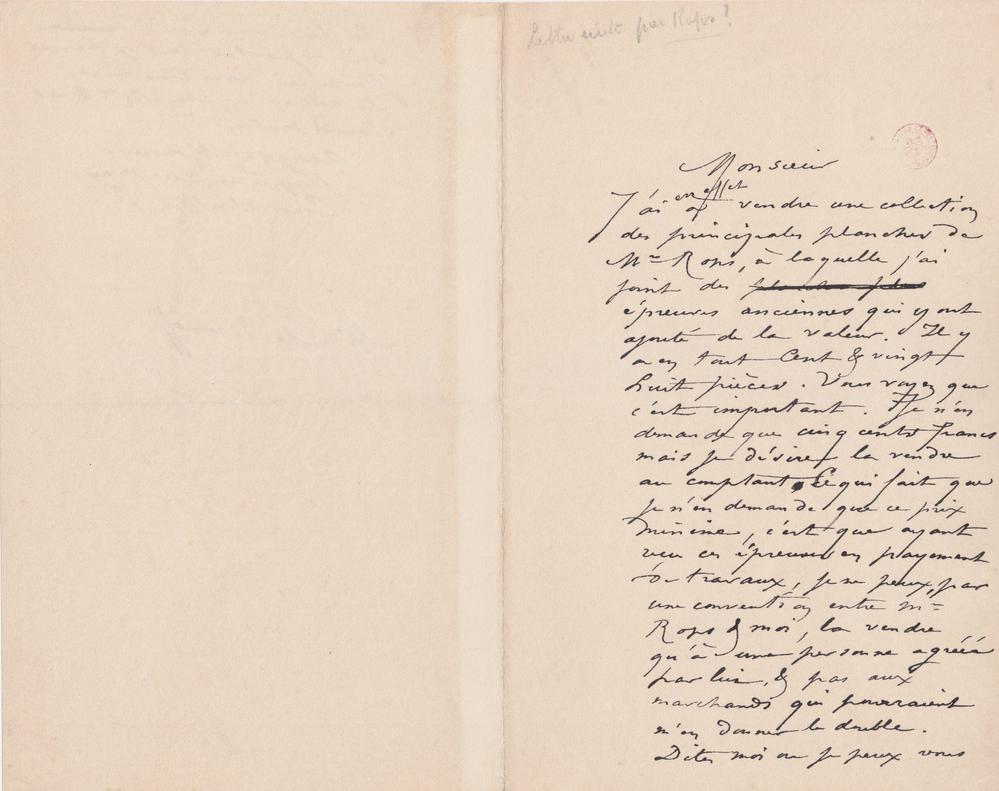 Lettre écrite par Rops?
Monsieur
J'ai en effet à vendre une collection
des principales planches de
Mr Rops, à laquelle j'ai
joint des
épreuves anciennes qui y ont
ajouté de la valeur. Il y
a en tout Cent & vingt
huit pièces. Vous voyez que
c'est important. Je n'en
demande que cinq cents francs
mais je désire la vendre
au comptant. Ce qui fait que
je n'en demande que ce prix
minime, c'est que ayant
reçu ces épreuves en payement
de travaux, je ne peux, par
une convention entre Mr
Rops & moi, la vendre
qu'à une personne agréée
par lui, & pas aux
marchands qui pourraient
m'en donner le double.
Dites moi ou je peux vous